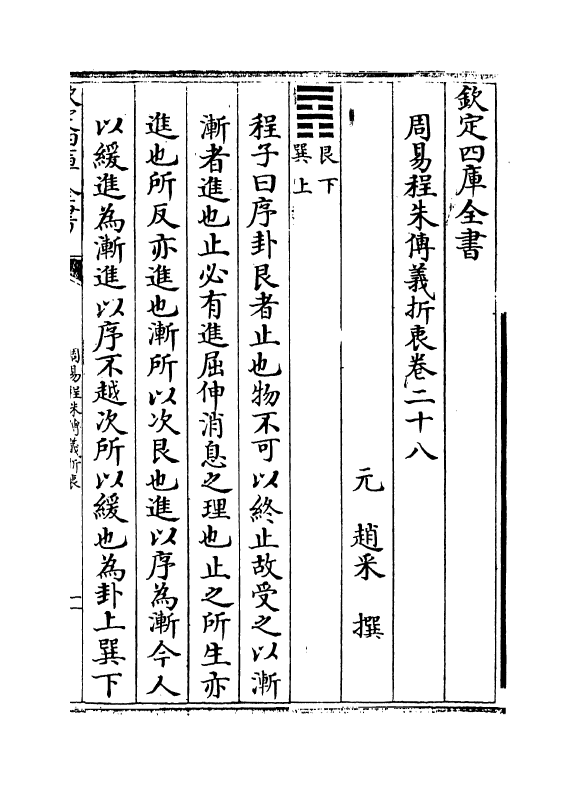 欽定四庫全書
周易程朱傳義折衷卷二十八
元 趙采 撰
䷴艮下
巽上
程子曰序卦艮者止也物不可以終止故受之以漸
漸者進也止必有進屈伸消息之理也止之所生亦
進也所反亦進也漸所以次艮也進以序為漸今人
以緩進為漸進以序不越次所以緩也為卦上巽下
欽定四庫全書
周易程朱傳義折衷
一